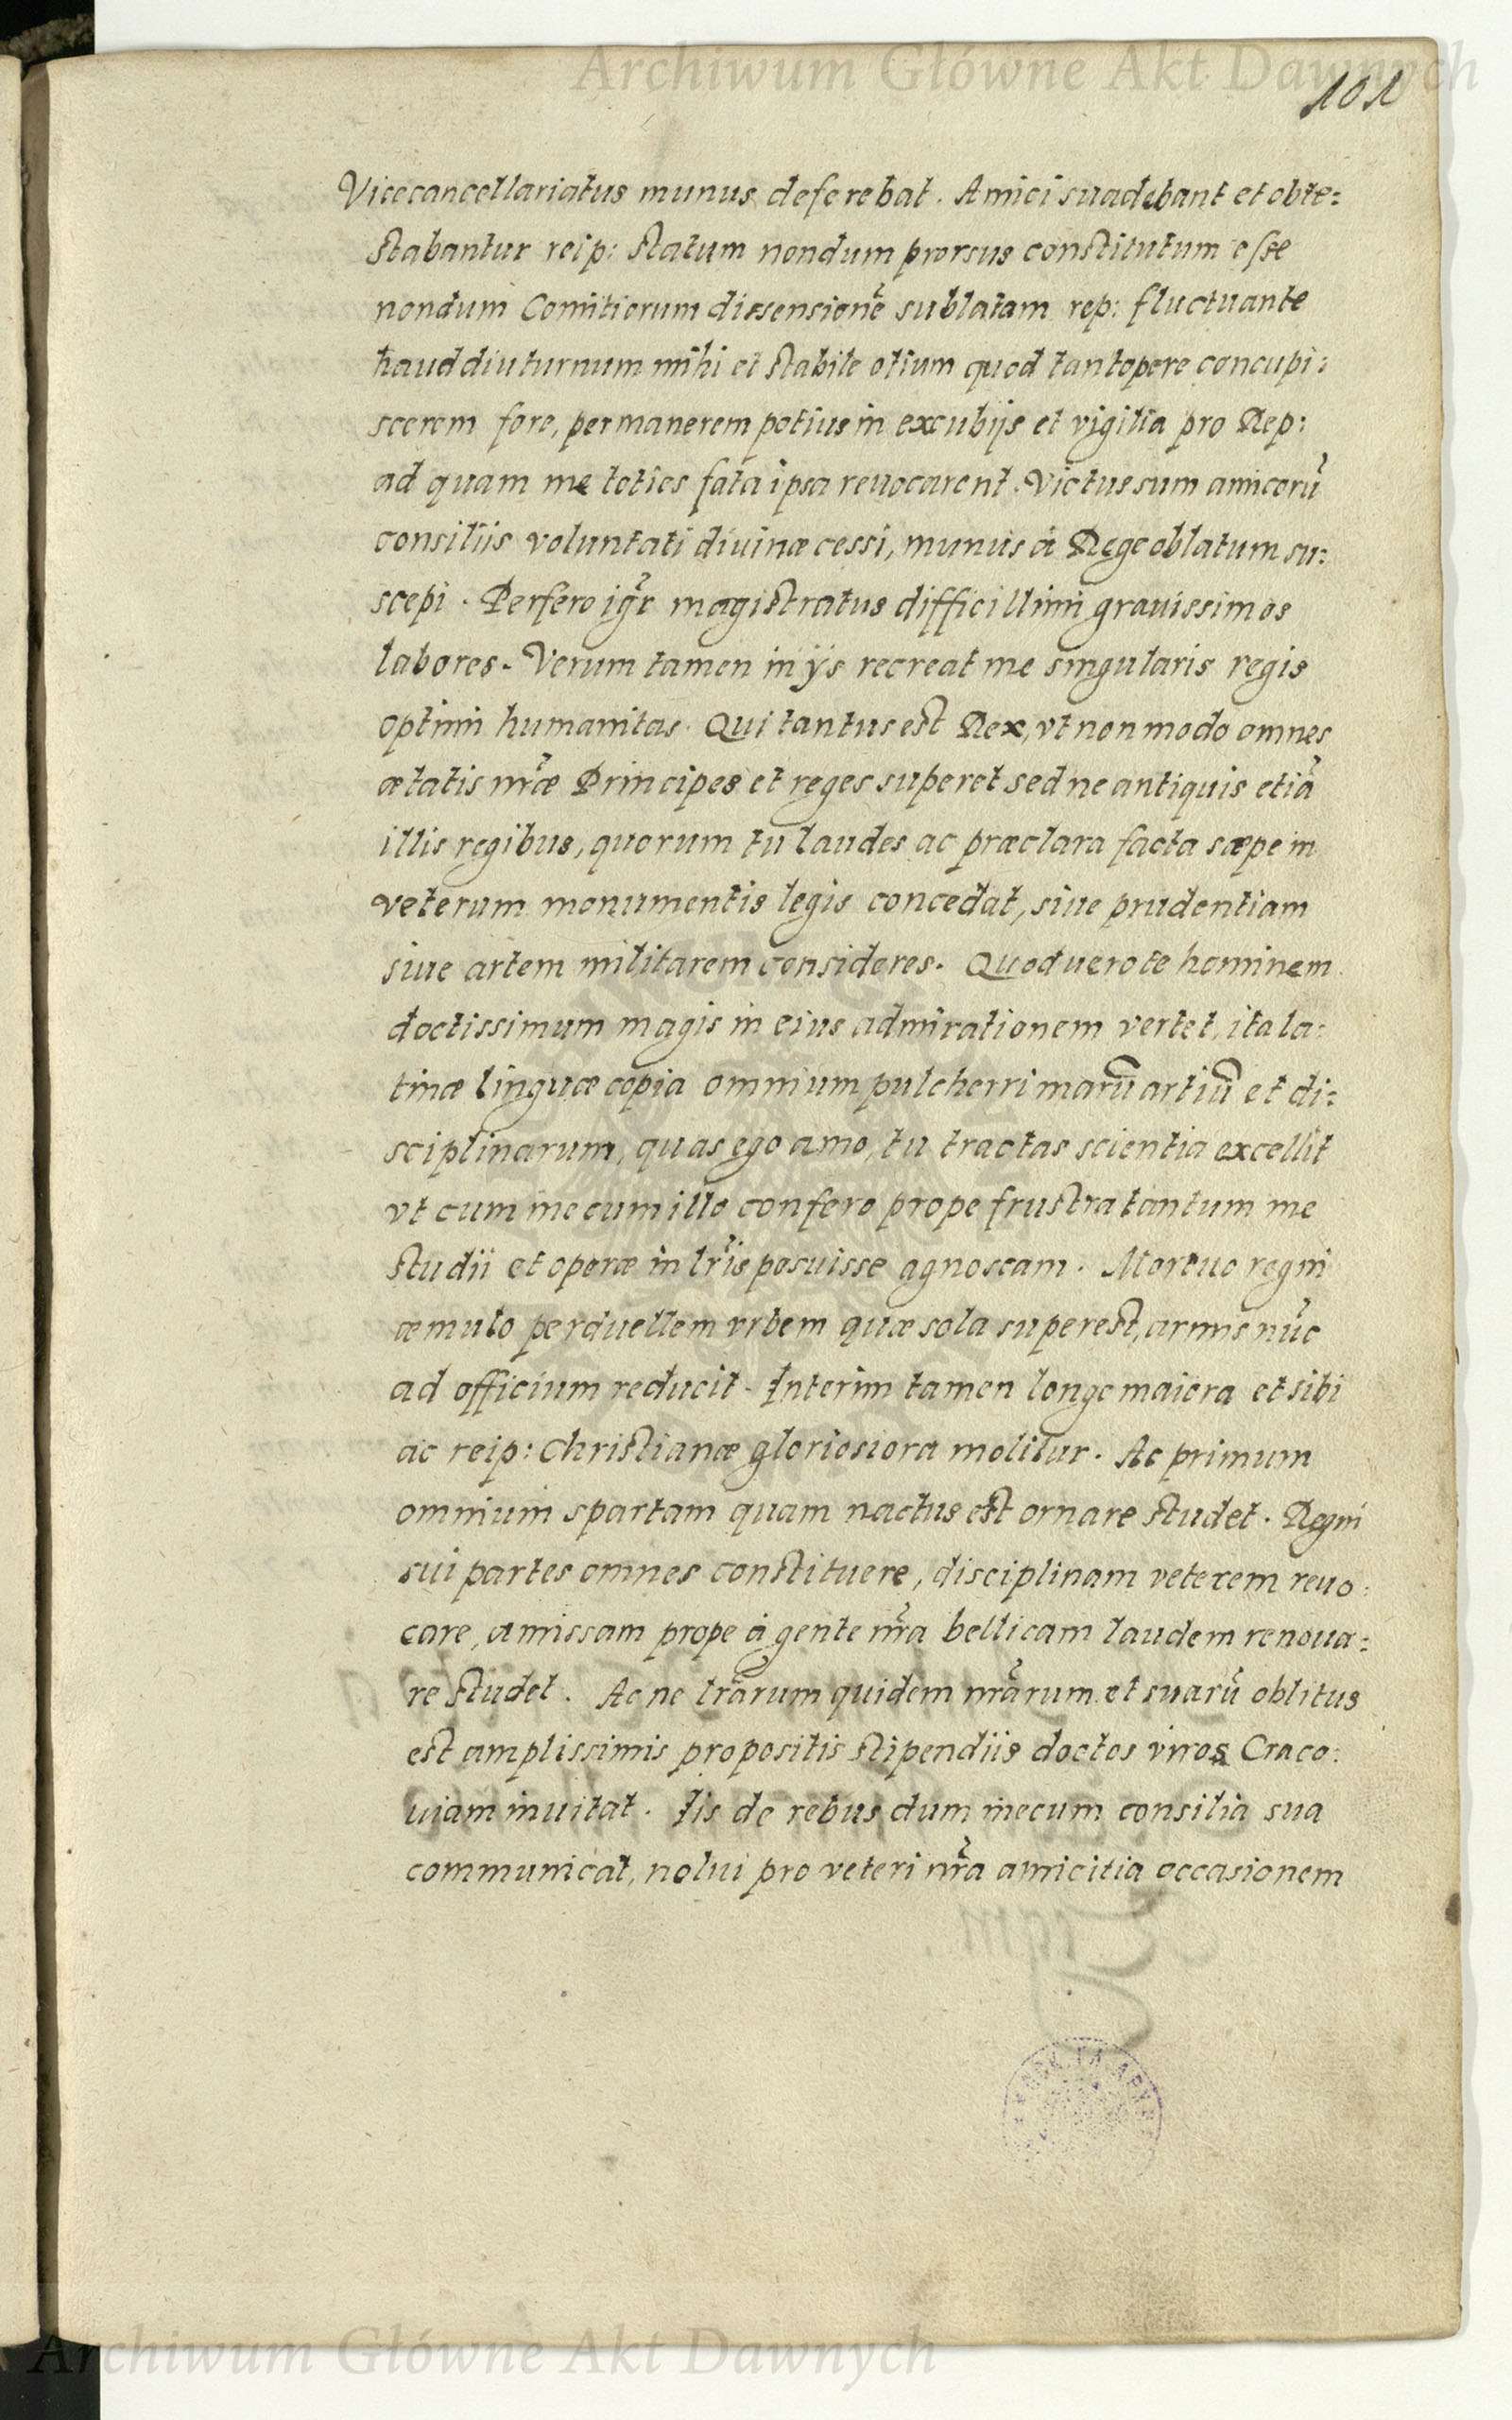 Archiwum Główne Akt Dawnych
101
Vicecancellariatus munus deferebat. Amici suadebant et obte:
stabantur reip: statum nondum prorsus constitutum esse
nondum Comitiorum dissensionē sublatam rep: fluctuante
haud diuturnum mihi et stabile otium quod tantopere concupi:
scerem fore, permanerem potius in excubijs et vigilia pro Rep:
ad quam me toties fata ipsa reuocarent. Victus sum amicorū
consiliis voluntati diuinæ cessi, munus à Rege oblatum su:
scepi. Perfero igr̃ magistratus difficillimi grauissimos
labores. Verum tamen in ijs recreat me singularis regis
optimi humanitas. Qui tantus est Rex, vt non modo omnes
ætatis nr̃æ Principes et reges superet sed ne antiquis etiā
illis regibus, quorum tu laudes ac præclara facta sæpe in
veterum monumentis legis concedat, siue prudentiam
siue artem militarem consideres. Quod uero te hominem
doctissimum magis in eius admirationem vertet, ita la:
tinæ linguæ copia omnium pulcherrimarū artiū et di:
sciplinarum, quas ego amo, tu tractas scientia excellit
vt cum me cum illo confero prope frustra tantum me
studii et operæ in lr̃is posuisse agnoscam. Mortuo regni
æmulo perduellem vrbem quæ sola superest, armis nūc
ad officium reducit. Interim tamen longe maiora et sibi
ac reip: Christianæ gloriosiora molitur. Ac primum
omnium spartam quam nactus est ornare studet. Regni
sui partes omnes constituere, disciplinam veterem reuo:
care, amissam prope à gente nr̃a bellicam laudem renoua:
re studet. Ac ne lr̃arum quidem nr̃arum et suarū oblitus
est amplissimis propositis stipendiis doctos viros Craco:
uiam inuitat. Iis de rebus dum mecum consilia sua
communicat, nolui pro veteri nr̃a amicitia occasionem
Archiwum Główne Akt Dawnych